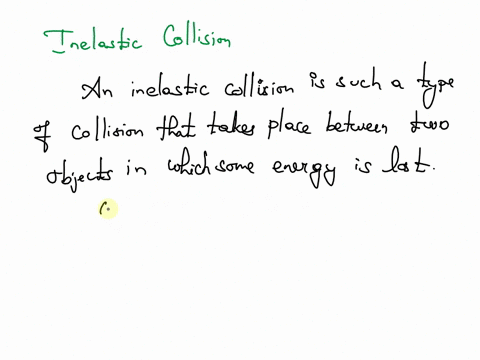 Inelastic Collision
An inelastic collision is such a type
of collision that takes place between two
objects in which some energy is lost.